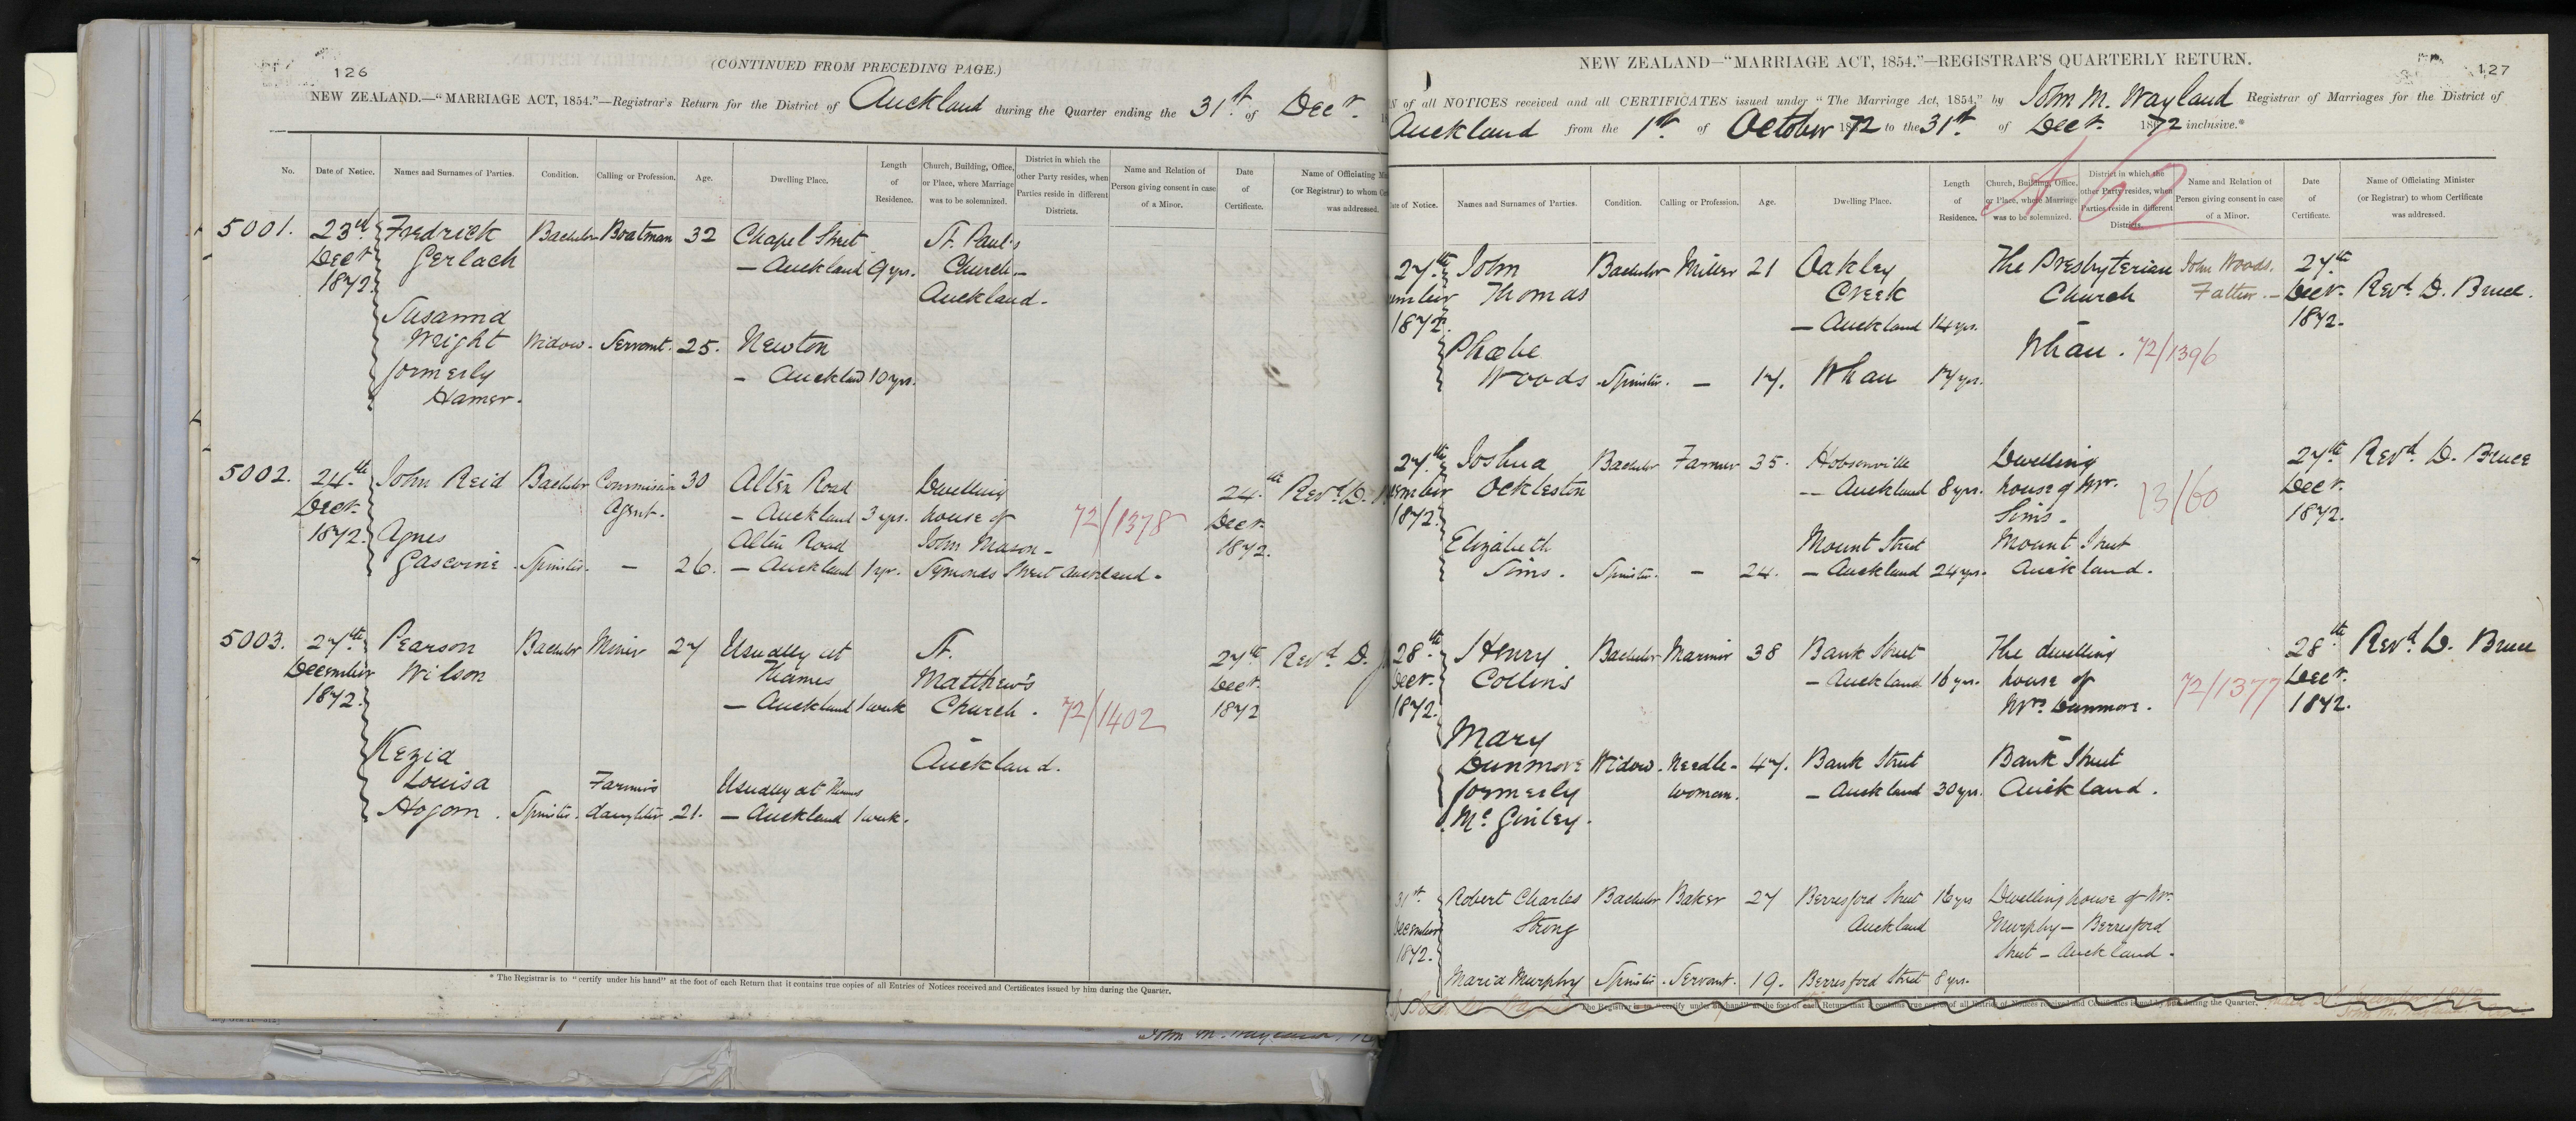 126
(CONTINUED FROM PRECEDING PAGE.)
NEW ZEALAND.—"MARRIAGE ACT, 1854."—Registrar's Return for the District of Auckland during the Quarter ending the 31st of Decr.
No. Date of Notice. Names and Surnames of Parties. Condition. Calling or Profession. Age. Dwelling Place. Length of Residence. Church, Building, Office, or Place, where Marriage was to be solemnized. District in which the other Party resides, when Parties reside in different Districts. Name and Relation of Person giving consent in case of a Minor. Date of Certificate. Name of Officiating (or Registrar) to whom was addressed.
5001. 23rd Fredrick Bachelor Boatman 32 Chapel Street St. Paul's
Decr Gerlach — Auckland 9 yrs. Church —
1872. Auckland.
Susanna
Wright Widow. Servant. 25. Newton
formerly — Auckland 10 yrs.
Hamer.
5002. 24th John Reid Bachelor Commission 30 Alten Road Dwelling 24th Revd. D.
Decr. Agent. — Auckland 3 yrs. house of 72/1378 Decr.
1872. Agnes Alten Road John Mason — 1872.
Gascoine Spinster. — 26. — Auckland 1 yr. Symonds Street Auckland.
5003. 27th Pearson Bachelor Miner 27 Usually at St. 27th Revd. D.
December Wilson Thames Matthew's Decr.
1872. — Auckland 1 week Church. 72/1402 1872
Kezia Auckland.
Louisa Farmer's Usually at Thames
Hogorn. Spinster. daughter 21. — Auckland 1 week.
* The Registrar is to "certify under his hand" at the foot of each Return that it contains true copies of all Entries of Notices received and Certificates issued by him during the Quarter.
127
NEW ZEALAND—"MARRIAGE ACT, 1854."—REGISTRAR'S QUARTERLY RETURN.
of all NOTICES received and all CERTIFICATES issued under "The Marriage Act, 1854," by John M. Wayland Registrar of Marriages for the District of
Auckland from the 1st of October 1872 to the 31st of Decr. 1872 inclusive.*
of Notice. Names and Surnames of Parties. Condition. Calling or Profession. Age. Dwelling Place. Length of Residence. Church, Building, Office, or Place, where Marriage was to be solemnized. District in which the other Party resides, when Parties reside in different Districts. Name and Relation of Person giving consent in case of a Minor. Date of Certificate. Name of Officiating Minister (or Registrar) to whom Certificate was addressed.
27th John Bachelor Miller 21 Oakley The Presbyterian John Woods. 27th
Thomas Creek Church Father. — Decr. Revd. D. Bruce.
1872. — Auckland 14 yrs. 1872.
Phœbe Whau. 72/1396
Woods Spinster. — 17. Whau 17 yrs.
27th Joshua Bachelor Farmer 35. Hobsonville Dwelling 27th Revd. D. Bruce
Ockleston — Auckland 8 yrs. house of Mr. 73/60 Decr.
1872. Sims. 1872.
Elizabeth Mount Street Mount Street
Sims. Spinster. — 24. — Auckland 24 yrs. Auckland.
28th Henry Bachelor Mariner 38 Bank Street The dwelling 28th Revd. D. Bruce
Decr. Collins — Auckland 16 yrs. house of 72/1377 Decr.
1872. Mrs. Dunmore. 1872.
Mary
Dunmore Widow. Needle- 47. Bank Street Bank Street
formerly woman. — Auckland 30 yrs. Auckland.
Mc. Ginley.
31st Robert Charles Bachelor Baker 27 Berresford Street 16 yrs Dwelling house of Mr.
December Strong Auckland Murphy — Berresford
1872. Street — Auckland.
Maria Murphy Spinster. Servant. 19. Berresford Street 8 yrs.
The Registrar is to "certify under his hand" at the foot of each Return that it contains true copies of all Entries of Notices received and Certificates issued by him during the Quarter.